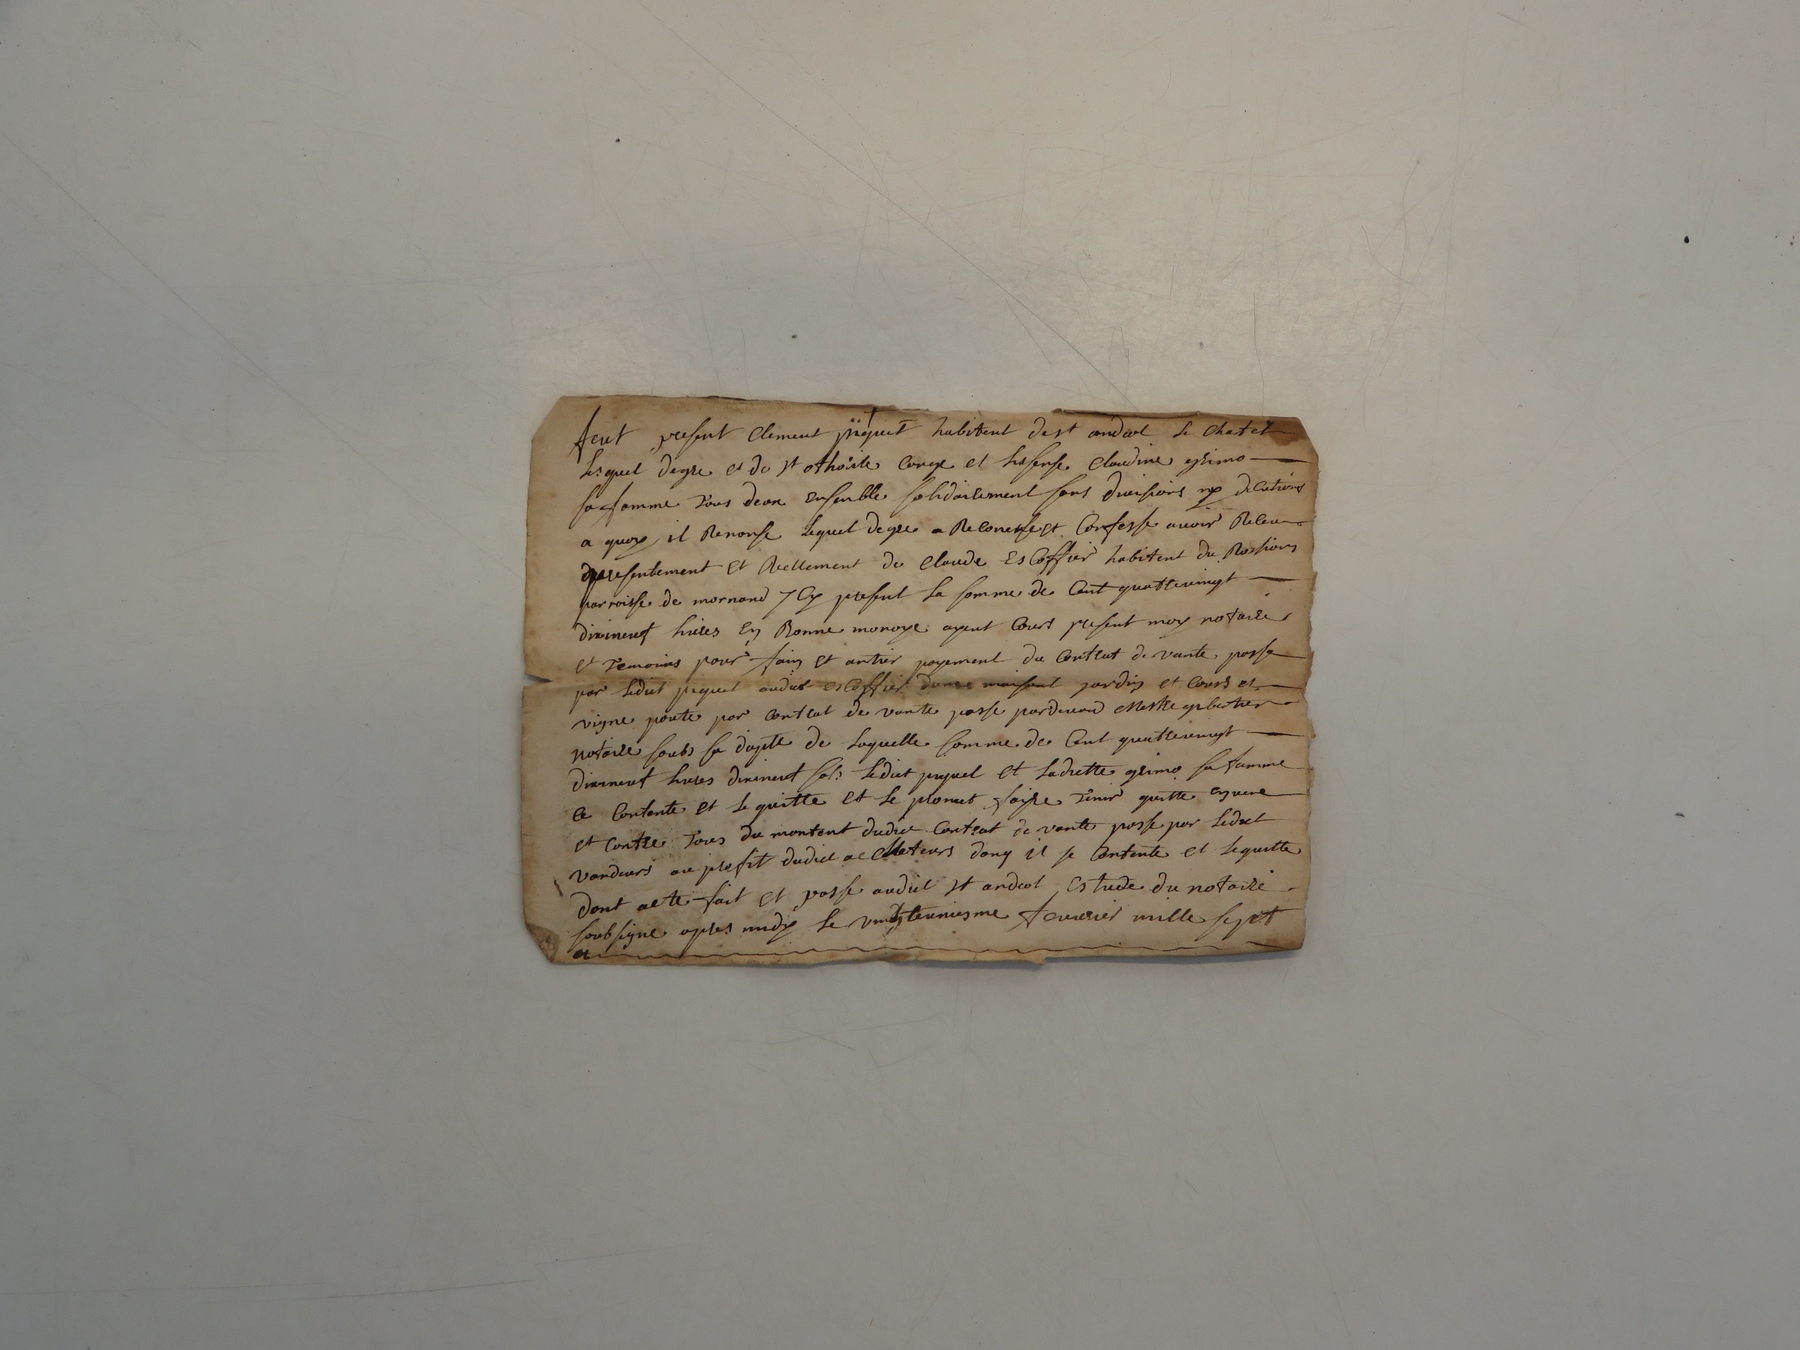 feut present Clement piquet habitent de st andeol le chatel
lesquel degre et de st othorite Conge et lissense Claudine grimo
sa famme tous deux ensenble solidairement sans diuisions ny
a quoy il Renonse lequel degre a Reconeu et Confesse auoir Receu
presentement et Reellement de Claude EsCoffier habitent du Rossions
parroisse de mornand present la somme de Cent quattreuingt
dixineuf liures En Bonne monoye ayent Cours present moy notaire
et temoins pour fain et antier payement du Contrat de vante passe
par ledict piquet audict esCoffier maison jardin et Cours et
vigne porte par Contrat de vante passe pardeuand Mestre
notaire soubs sa dapte de laquelle somme de Cent quattreuingt
dixineuf liures dixineuf sols ledict piquet et ladictte grimo sa famme
ce Contante et le quitte et le promet faire tenir quitte enuers
et Contre tous du montent dudict Contrat de vante passe par ledict
vandeurs au profit dudict dong il se Contente et le quitte
dont acte fait et passe audict st andeol estude du notaire
soubsigne apres midy le feurier mille sept